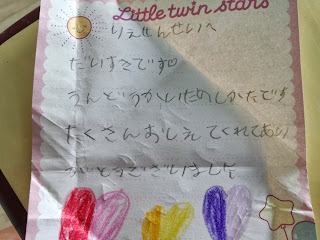 Little twin stars
りえせんせいへ
だいすきです♡
うんどうかいたのしかったです
たくさんおしえてくれてあり
がとうございました